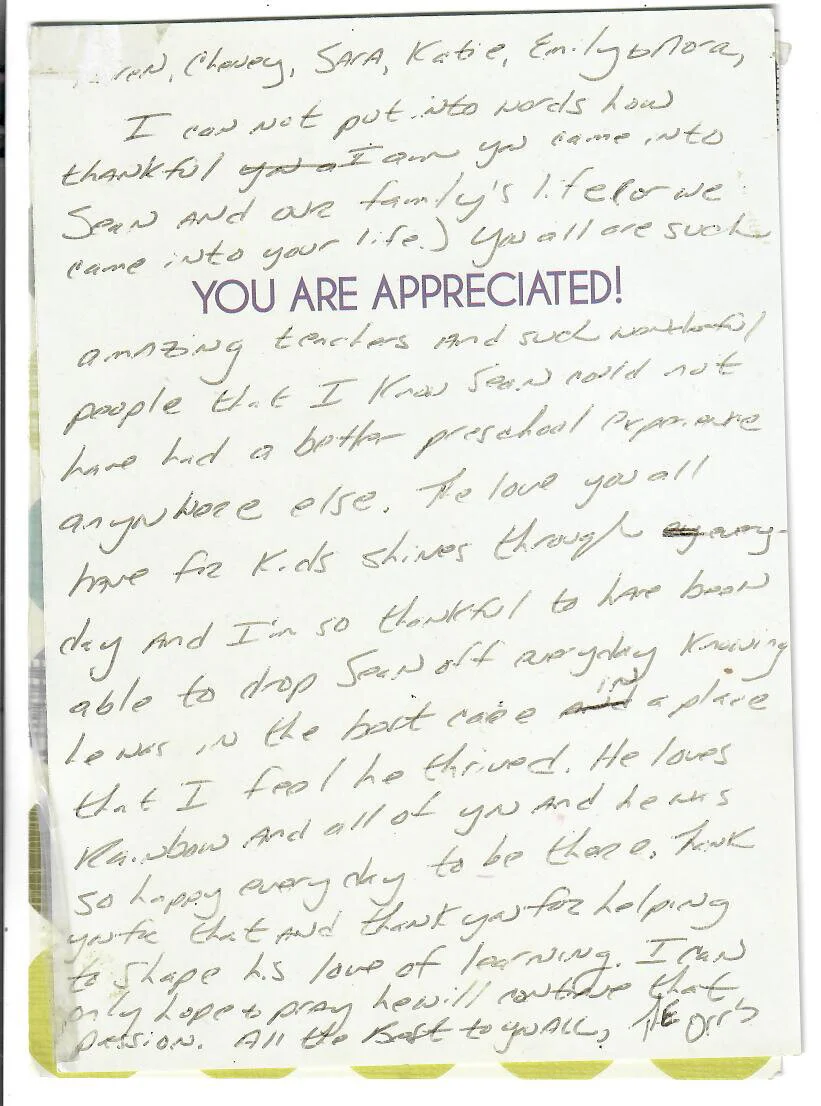 ren, Chevey, SARA, Katie, Emily & Nora,
I can not put into words how
thankful I am you came into
Sean and our family's life (or we
came into your life.) You all are such
YOU ARE APPRECIATED!
amazing teachers and such wonderful
people that I know Sean could not
have had a better preschool experience
anywhere else. The love you all
have for kids shines through every-
day and I'm so thankful to have been
able to drop Sean off everyday knowing
he was in the best care in a place
that I feel he thrived. He loves
Rainbow and all of you and he was
so happy every day to be there. Thank
you for that and thank you for helping
to shape his love of learning. I can
only hope & pray he will continue that
passion. All the Best to you ALL, The Orr's